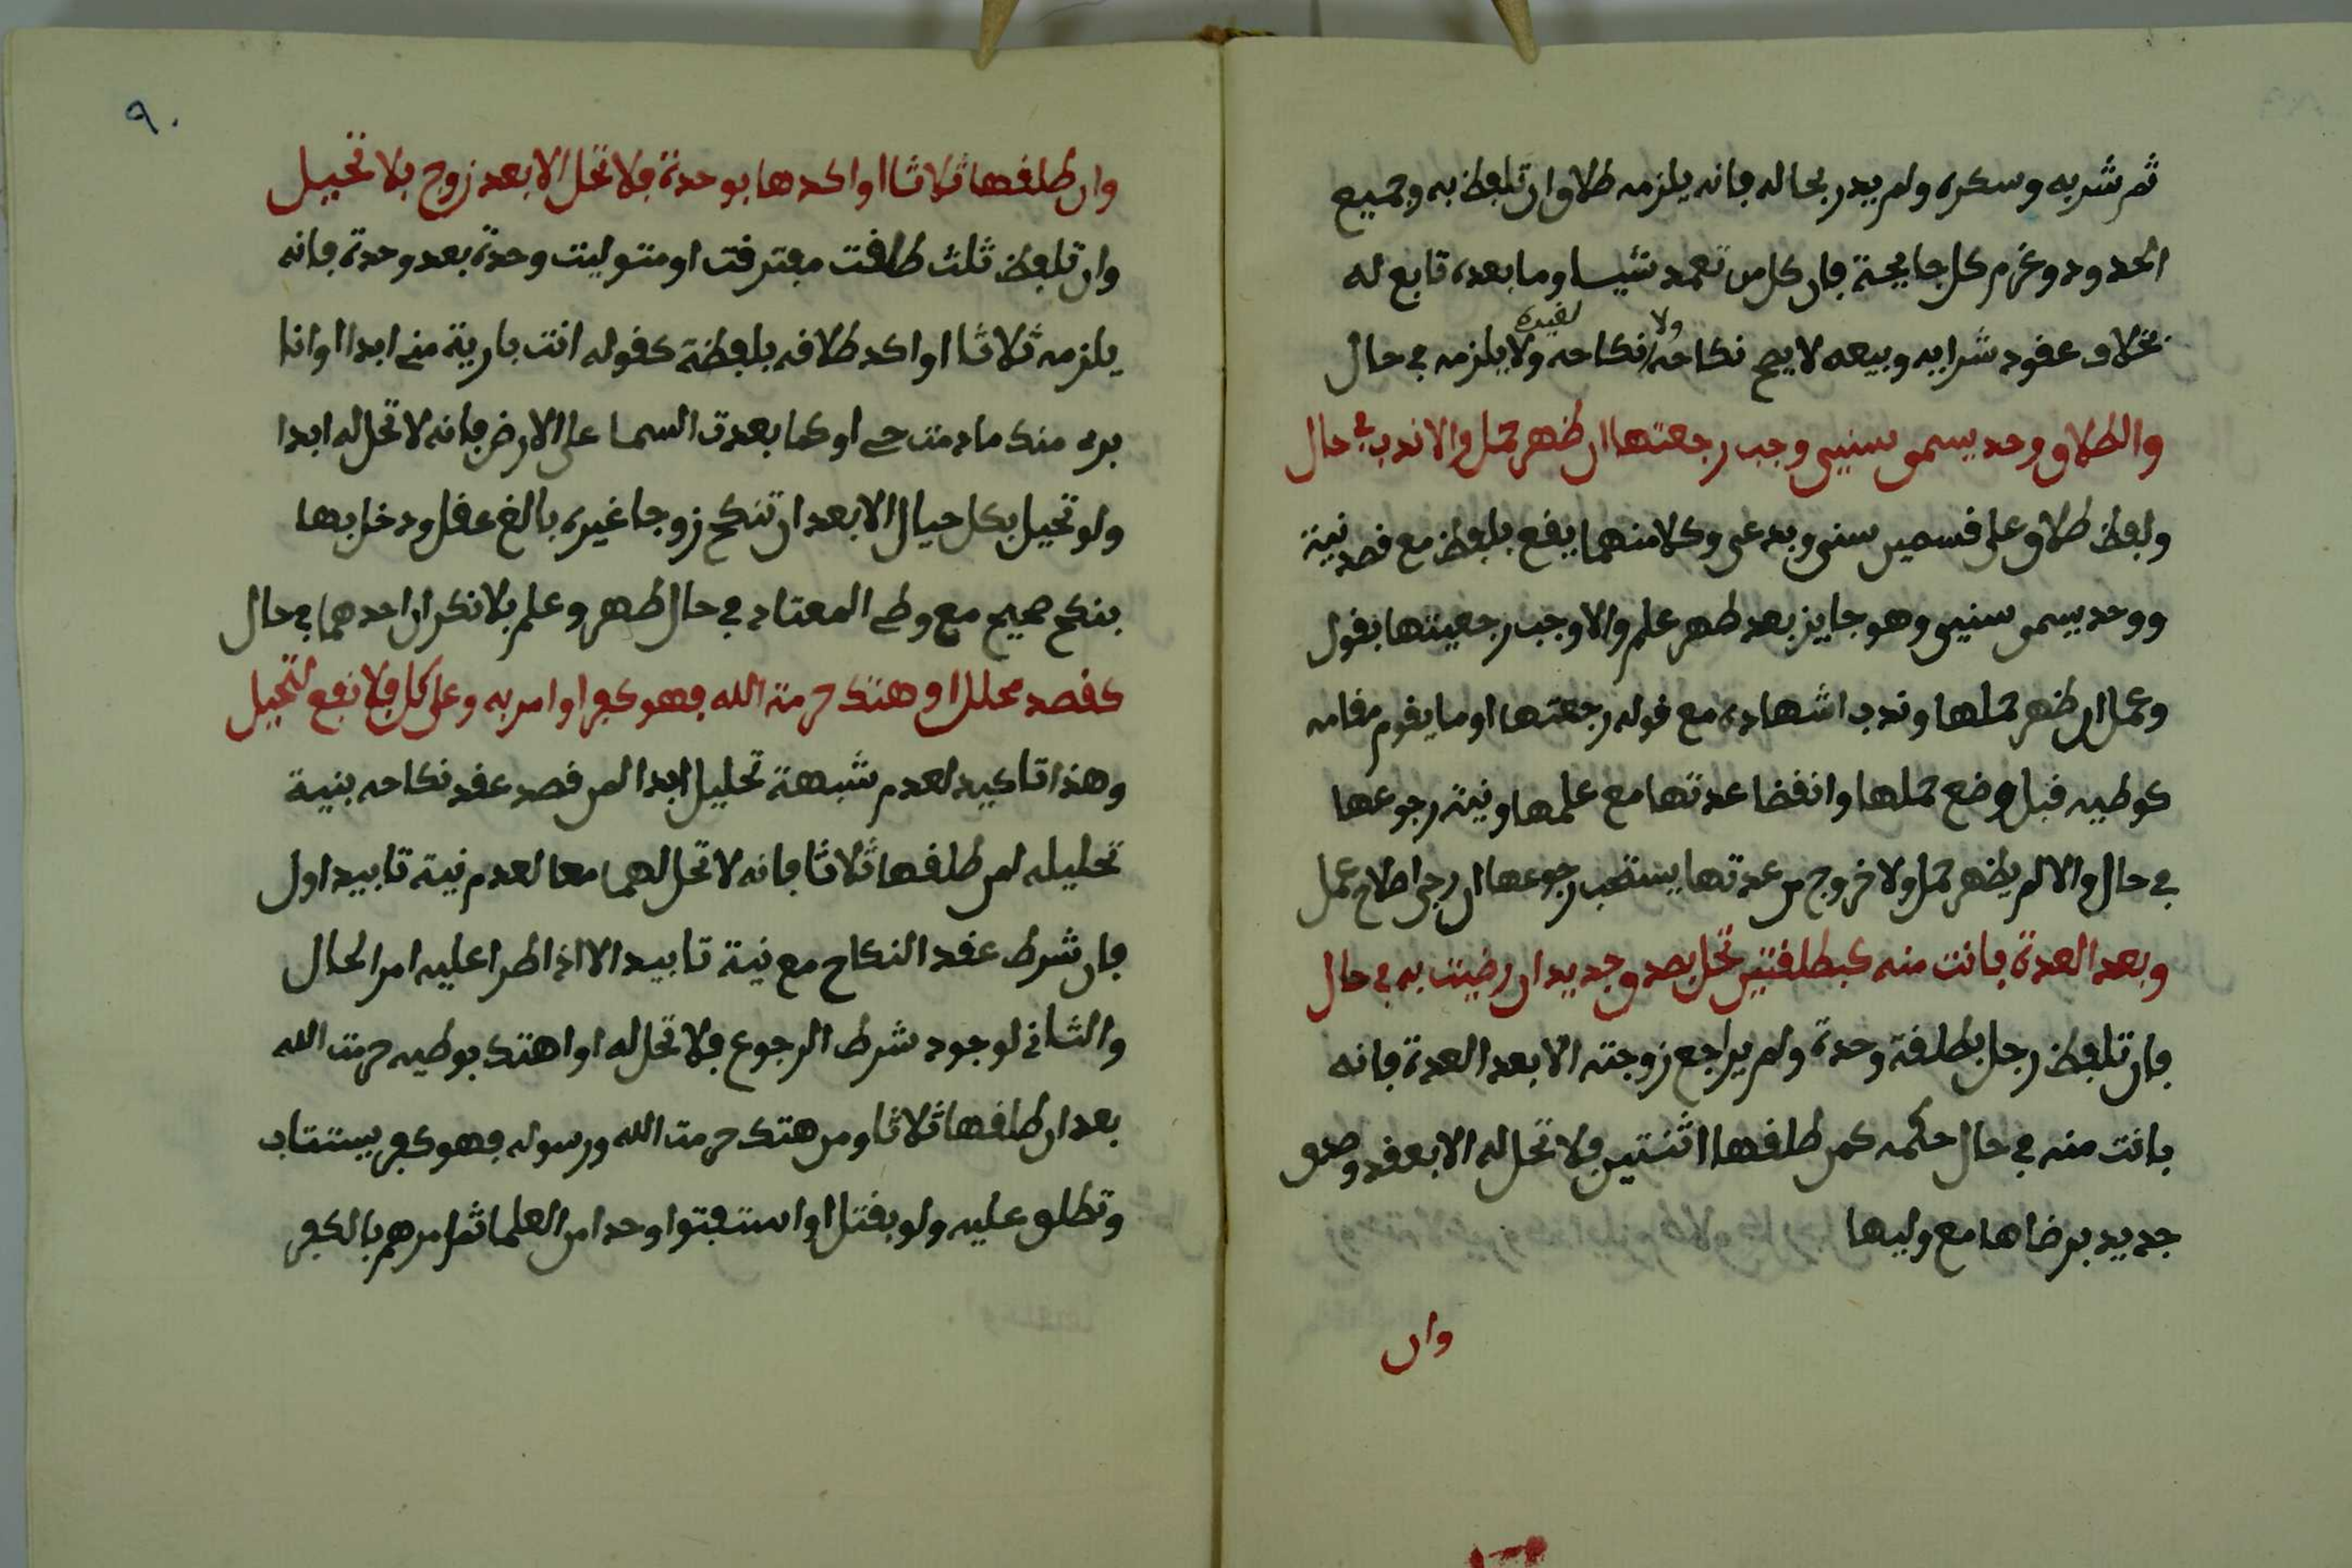 ثم شربه وسكره ولم يدر بحاله فانه يلزمه طلاق ان تلفظ به وجميع
الحدود وغرم كل جايحة فان كل من تعمد شيا وما بعده تابع له
بخلاف عقود شرايه وبيعه لا يصح نكاحه ولا نكاحه لغيره ولا يلزمه في حال
والطلاق وحد يسمى سنيى وجب رجعتها ان ظهر حمل والا ندب في حال
ولفظ طلاق على قسمين سنى وبدعى وكلا منهما يقع بلفظ مع قصد نية
ووحد يسمى سنيى وهو جايز بعد طهر علم والا وجب رجعيتها بقول
وعمل ان ظهر حملها وندب اشهاده مع قوله رجعتها او ما يقوم مقامه
كوطيه قبل وضع حملها وانقضا عدتها مع علمها ونية رجوعها
في حال والا لم يظهر حمل ولا خروج من عدتها يستحب رجوعها ان رجى اصلاح عمل
وبعد العدة بانت منه كبطلقتين تحل بصدق جديد ان رضيت به في حال
فان تلفظ رجل بطلقة وحدة ولم يراجع زوجته الا بعد العدة فانه
بانت منه في حال حكمه كمن طلقها اثنتين فلا تحل له الا بعقد وصدق
جديد برضاها مع وليها
وان
٩٠
وان طلقها ثلاثا او اكدها بوحدة فلا تحل الا بعد زوج بلا تحيل
وان تلفظ ثلث طلقت مفترقت او متوليت وحدة بعد وحدة فانه
يلزمه ثلاثا او اكد طلاقه بلفظة كقوله انت بارية مني ابدا او انا
بره منك ما دمت حي او كما بعدت السما على الارض فانه لا تحل له ابدا
ولو تحيل بكل حيال الا بعد ان تنكح زوجا غيره بالغ عقل ودخل بها
بنكح صحيح مع وطي المعتاد في حال طهر وعلم بلا نكران احدهما في حال
كقصد محلل او هتك حرمة الله فهو كفر او امر به وعلى كل فلا نفع لتحيل
وهذا تاكيد لعدم شبهة تحليل ابدا لمن قصد عقد نكاحه بنية
تحليله لمن طلقها ثلاثا فانه لا تحل لهما معا لعدم نية تابيد اول
فان شرط عقد النكاح مع نية تابيد الا اذا طرا عليه امر الحال
والثاني لوجود شرط الرجوع فلا تحل له او اهتك بوطيه حرمت الله
بعد ان طلقها ثلاثا ومن هتك حرمت الله ورسوله فهو كفر يستتاب
وتطلق عليه ولو بقتل او استفتوا وحدا من العلما ثم امرهم بالكفر